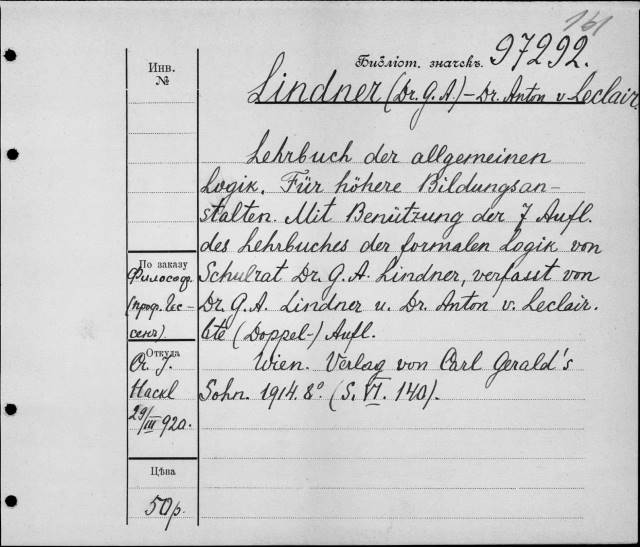 161
Инв.
№
Библіот. значекъ. 97292.
Lindner (Dr. G. A) – Dr. Anton v Leclair.
Lehrbuch der allgemeinen
Logik. Für höhere Bildungsan-
stalten. Mit Benützung der 7 Aufl.
des Lehrbuches der formalen Logik von
Schulrat Dr. G. A. Lindner, verfasst von
Dr. G. A. Lindner u. Dr. Anton v. Leclair.
6te (Doppel-) Aufl.
Wien. Verlag von Carl Gerald's
Sohn. 1914. 8° (S. VI. 140).
По заказу
Философ.
(проф. Гес-
сенъ)
Откуда
От J.
Наскl
29/III 920.
Цѣна
50 р.